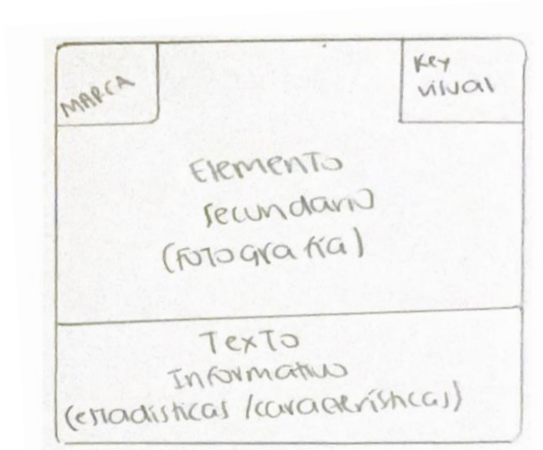 MARCA
Key
visual
Elemento
secundario
(fotografía)
Texto
Informativo
(estadisticas / características)